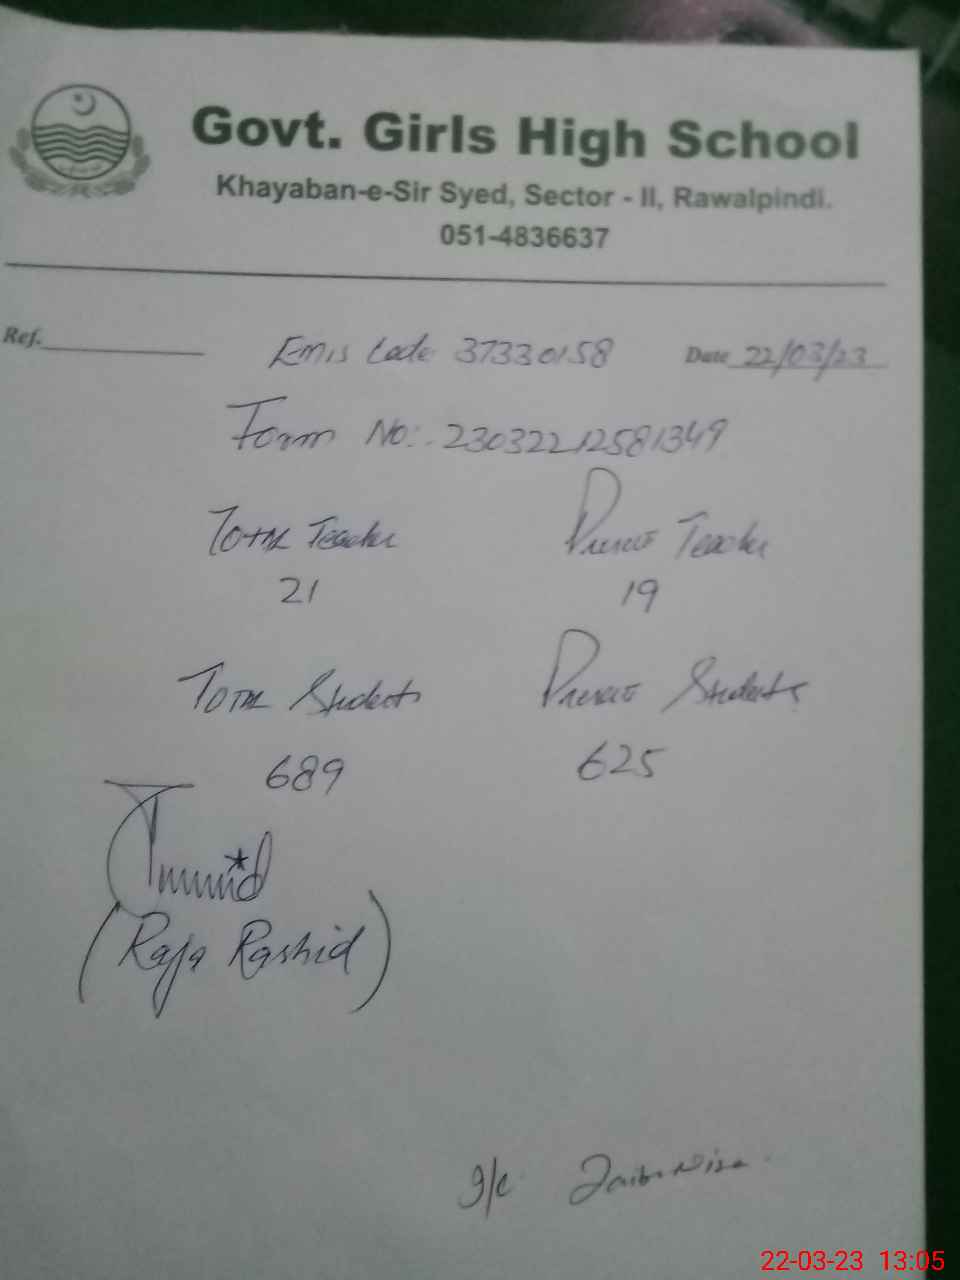 Govt. Girls High School
Khayaban-e-Sir Syed, Sector - II, Rawalpindi.
051-4836637
Ref. Emis Code 37330158 Date 22/03/23
Form No:. 23032212581349
Total Teacher Present Teacher
21 19
Total Students Present Students
689 625
(Raja Rashid)
I/c
22-03-23 13:05